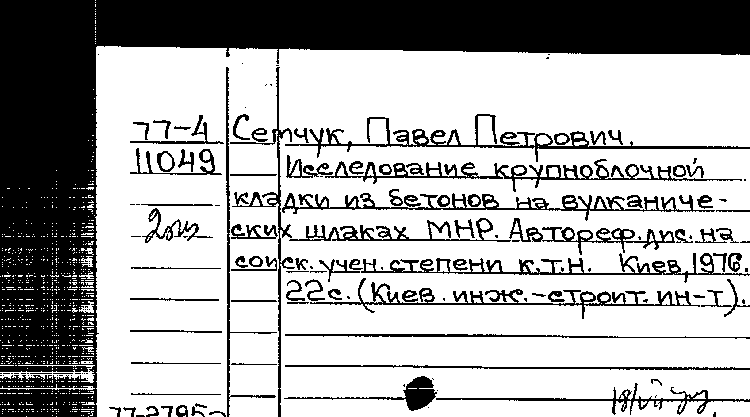 77-4 Сетчук, Павел Петрович.
11049 Исследование крупноблочной
кладки из бетонов на вулканиче-
ских шлаках МНР. Автореф.дис. на
соиск. учен. степени к.т.н. Киев, 1976.
22с. (Киев. инж.-строит. ин-т).